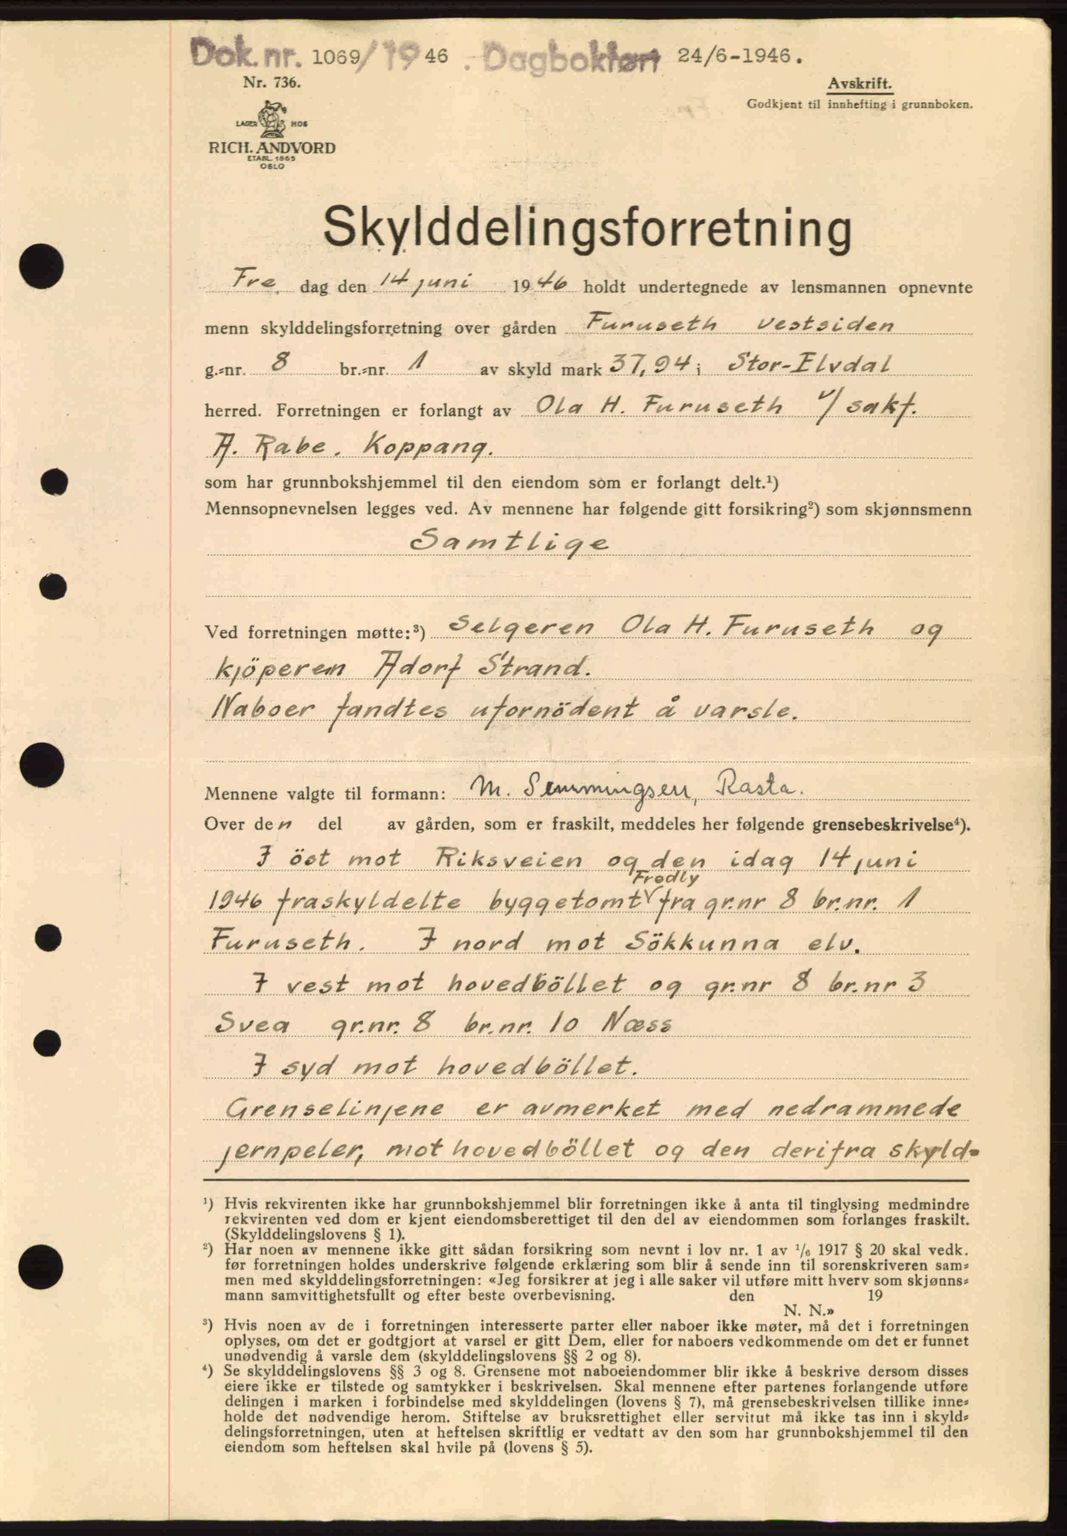 Dok. nr. 1069/1946. Dagbokført 24/6-1946.
Nr. 736.
Avskrift.
Godkjent til innhefting i grunnboken.
LAGER HOS
RICH. ANDVORD
ETABL. 1865
OSLO
Skylddelingsforretning
Fre. dag den 14 juni 1946 holdt undertegnede av lensmannen opnevnte
menn skylddelingsforretning over gården Furuseth vestsiden
g.-nr. 8 br.-nr. 1 av skyld mark 37,94 i Stor-Elvdal
herred. Forretningen er forlangt av Ola H. Furuseth v/ sakf.
A. Rabe. Koppang.
som har grunnbokshjemmel til den eiendom som er forlangt delt.¹)
Mennsopnevnelsen legges ved. Av mennene har følgende gitt forsikring²) som skjønnsmenn
Samtlige
Ved forretningen møtte:³) Selgeren Ola H. Furuseth og
kjöperen Adorf Strand.
Naboer fandtes ufornödent å varsle.
Mennene valgte til formann: M. Semmingsen, Rasta.
Over den del av gården, som er fraskilt, meddeles her følgende grensebeskrivelse⁴).
I öst mot Riksveien og den idag 14 juni
Fredly
1946 fraskyldelte byggetomt fra gr.nr 8 br.nr. 1
Furuseth. I nord mot Sökkunna elv.
I vest mot hovedböllet og gr.nr 8 br.nr 3
Svea gr.nr. 8 br.nr. 10 Næss
I syd mot hovedböllet.
Grenselinjene er avmerket med nedrammede
jernpeler, mot hovedböllet og den derifra skyld-
¹) Hvis rekvirenten ikke har grunnbokshjemmel blir forretningen ikke å anta til tinglysing medmindre
rekvirenten ved dom er kjent eiendomsberettiget til den del av eiendommen som forlanges fraskilt.
(Skylddelingslovens § 1).
²) Har noen av mennene ikke gitt sådan forsikring som nevnt i lov nr. 1 av 1/6 1917 § 20 skal vedk.
før forretningen holdes underskrive følgende erklæring som blir å sende inn til sorenskriveren sam-
men med skylddelingsforretningen: «Jeg forsikrer at jeg i alle saker vil utføre mitt hverv som skjønns-
mann samvittighetsfullt og efter beste overbevisning. den 19
N. N.»
³) Hvis noen av de i forretningen interesserte parter eller naboer ikke møter, må det i forretningen
oplyses, om det er godtgjort at varsel er gitt Dem, eller for naboers vedkommende om det er funnet
unødvendig å varsle dem (skylddelingslovens §§ 2 og 8).
⁴) Se skylddelingslovens §§ 3 og 8. Grensene mot naboeiendommer blir ikke å beskrive dersom disses
eiere ikke er tilstede og samtykker i beskrivelsen. Skal mennene efter partenes forlangende utføre
delingen i marken i forbindelse med skylddelingen (lovens § 7), må grensebeskrivelsen tillike inne-
holde det nødvendige herom. Stiftelse av bruksrettighet eller servitut må ikke tas inn i skyld-
delingsforretningen, uten at heftelsen skriftlig er vedtatt av den som har grunnbokshjemmel til den
eiendom som heftelsen skal hvile på (lovens § 5).